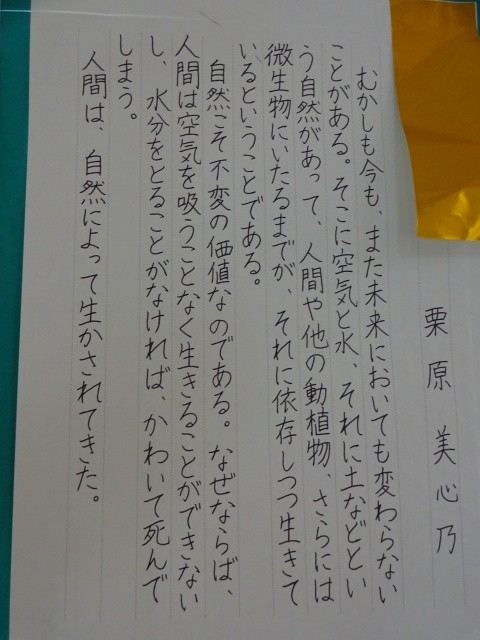 栗原 美心乃
むかしも今も、また未来においても変わらない
ことがある。そこに空気と水、それに土などとい
う自然があって、人間や他の動植物、さらには
微生物にいたるまでが、それに依存しつつ生きて
いるということである。
自然こそ不変の価値なのである。なぜならば、
人間は空気を吸うことなく生きることができない
し、水分をとることがなければ、かわいて死んで
しまう。
人間は、自然によって生かされてきた。